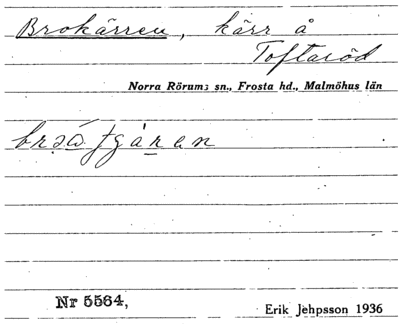 Brokärren, kärr å
Toftaröd
Norra Rörums sn., Frosta hd., Malmöhus län
Nr 5564,
Erik Jehpsson 1936